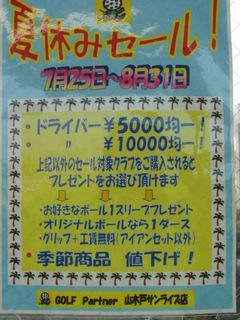 夏休みセール!
7月25日~8月31日
・ドライバー ¥5000均一!
・ 〃 ¥10000均一!
上記以外のセール対象クラブをご購入されると
プレゼントをお選び頂けます
・お好きなボール1スリーブプレゼント
・オリジナルボールなら1ダース
・グリップ+工賃無料(アイアンセット以外)
・季節商品 値下げ!
GOLF Partner 山木戸サンライズ店